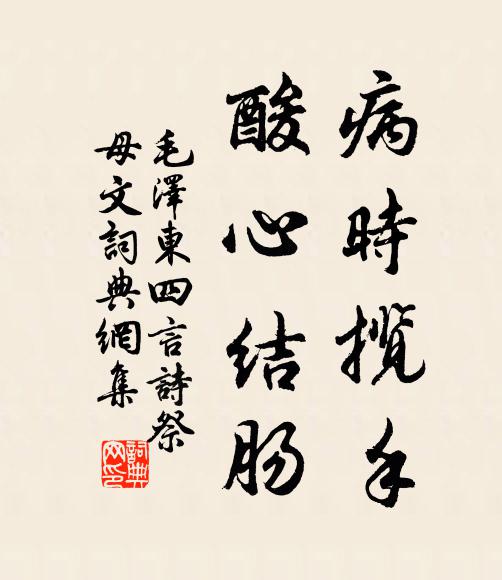 病時攬手
酸心结肠
毛澤東四言詩祭
母文詞典網集
詞典
网印